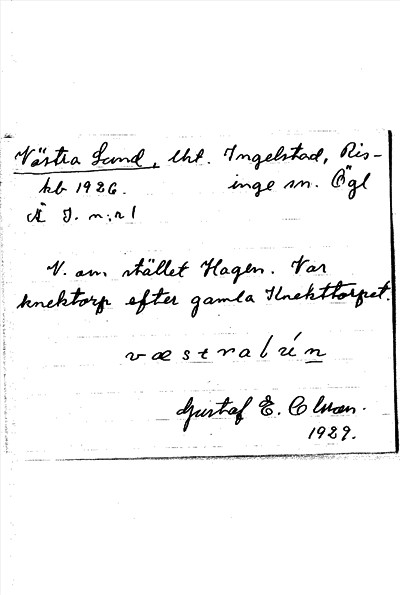 Västra Lund, lht. Ingelstad, Ris-
kb 1926. inge sn. Ögl
Ä J. n:r 1
V. om stället Hagen. Var
knektorp efter gamla Knekttorpet.
Gustaf E. Olson.
1929.